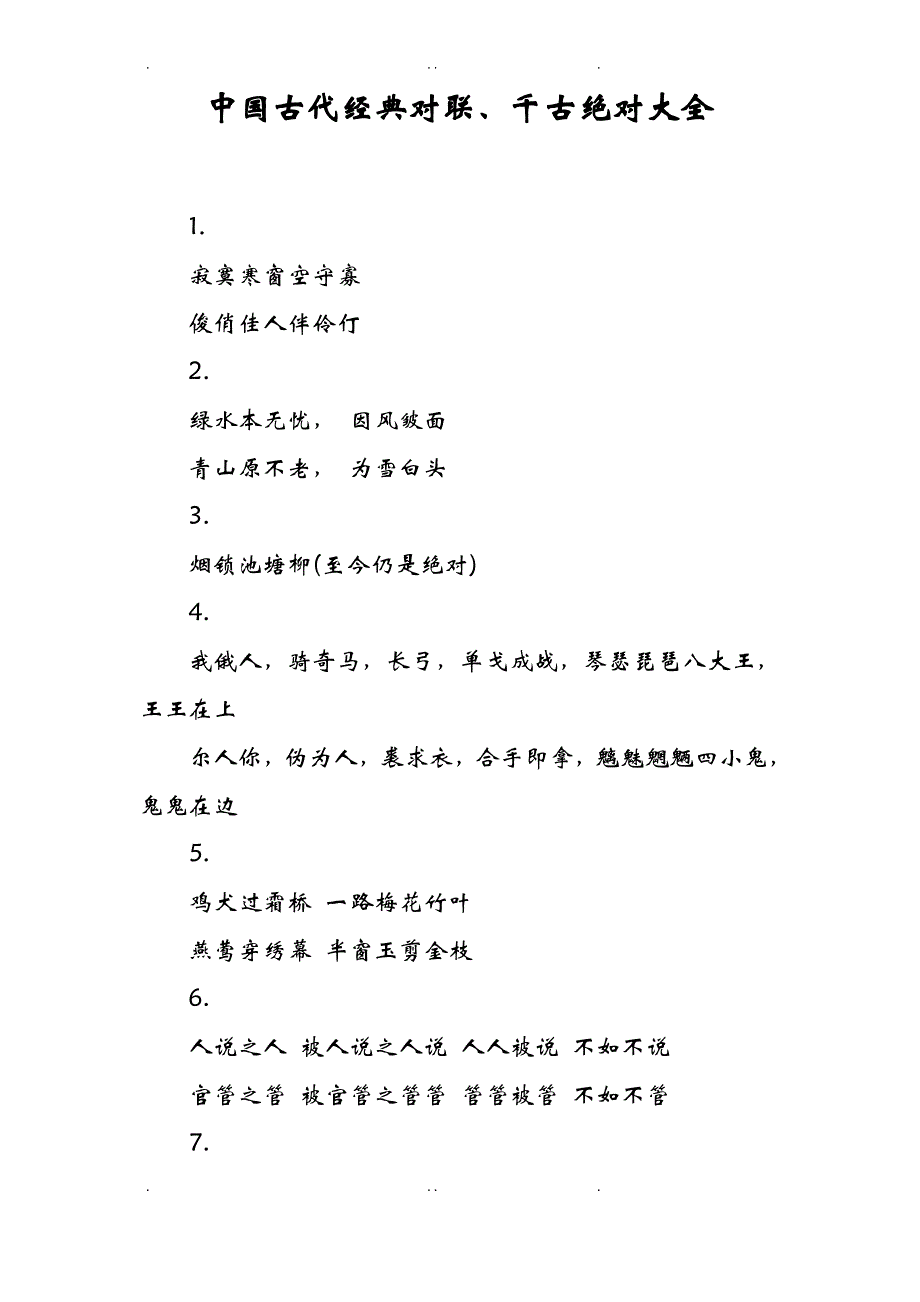 中国古代经典对联、千古绝对大全
1.
寂寞寒窗空守寡
俊俏佳人伴伶仃
2.
绿水本无忧， 因风皱面
青山原不老， 为雪白头
3.
烟锁池塘柳(至今仍是绝对)
4.
我俄人，骑奇马，长弓，单戈成战，琴瑟琵琶八大王，
王王在上
尔人你，伪为人，裘求衣，合手即拿，魑魅魍魉四小鬼，
鬼鬼在边
5.
鸡犬过霜桥 一路梅花竹叶
燕莺穿绣幕 半窗玉剪金枝
6.
人说之人 被人说之人说 人人被说 不如不说
官管之管 被官管之管管 管管被管 不如不管
7.